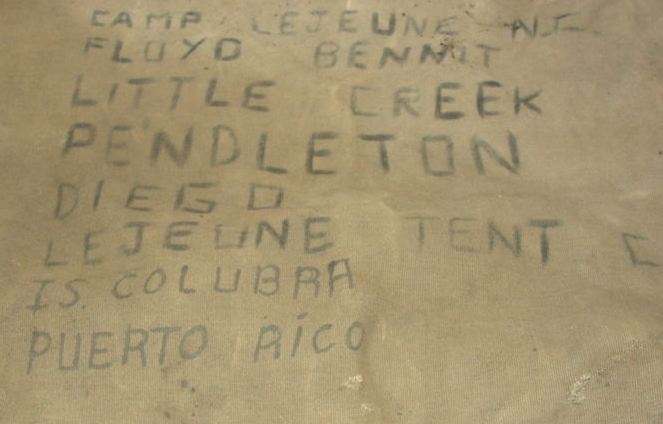 CAMP LEJEUNE N.C
FLOYD BENNIT
LITTLE CREEK
PENDLETON
DIEGO
LEJEUNE TENT C
IS. COLUBRA
PUERTO RICO